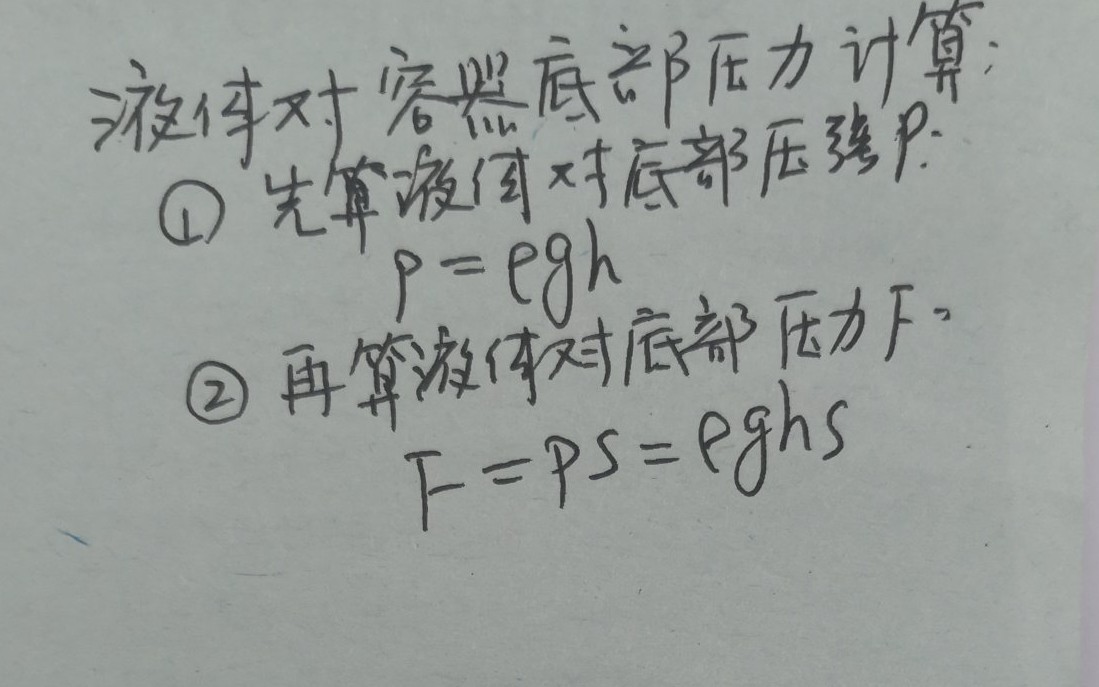 液体对容器底部压力计算:
① 先算液体对底部压强P:
P=ρgh
② 再算液体对底部压力F:
F=PS=ρghs